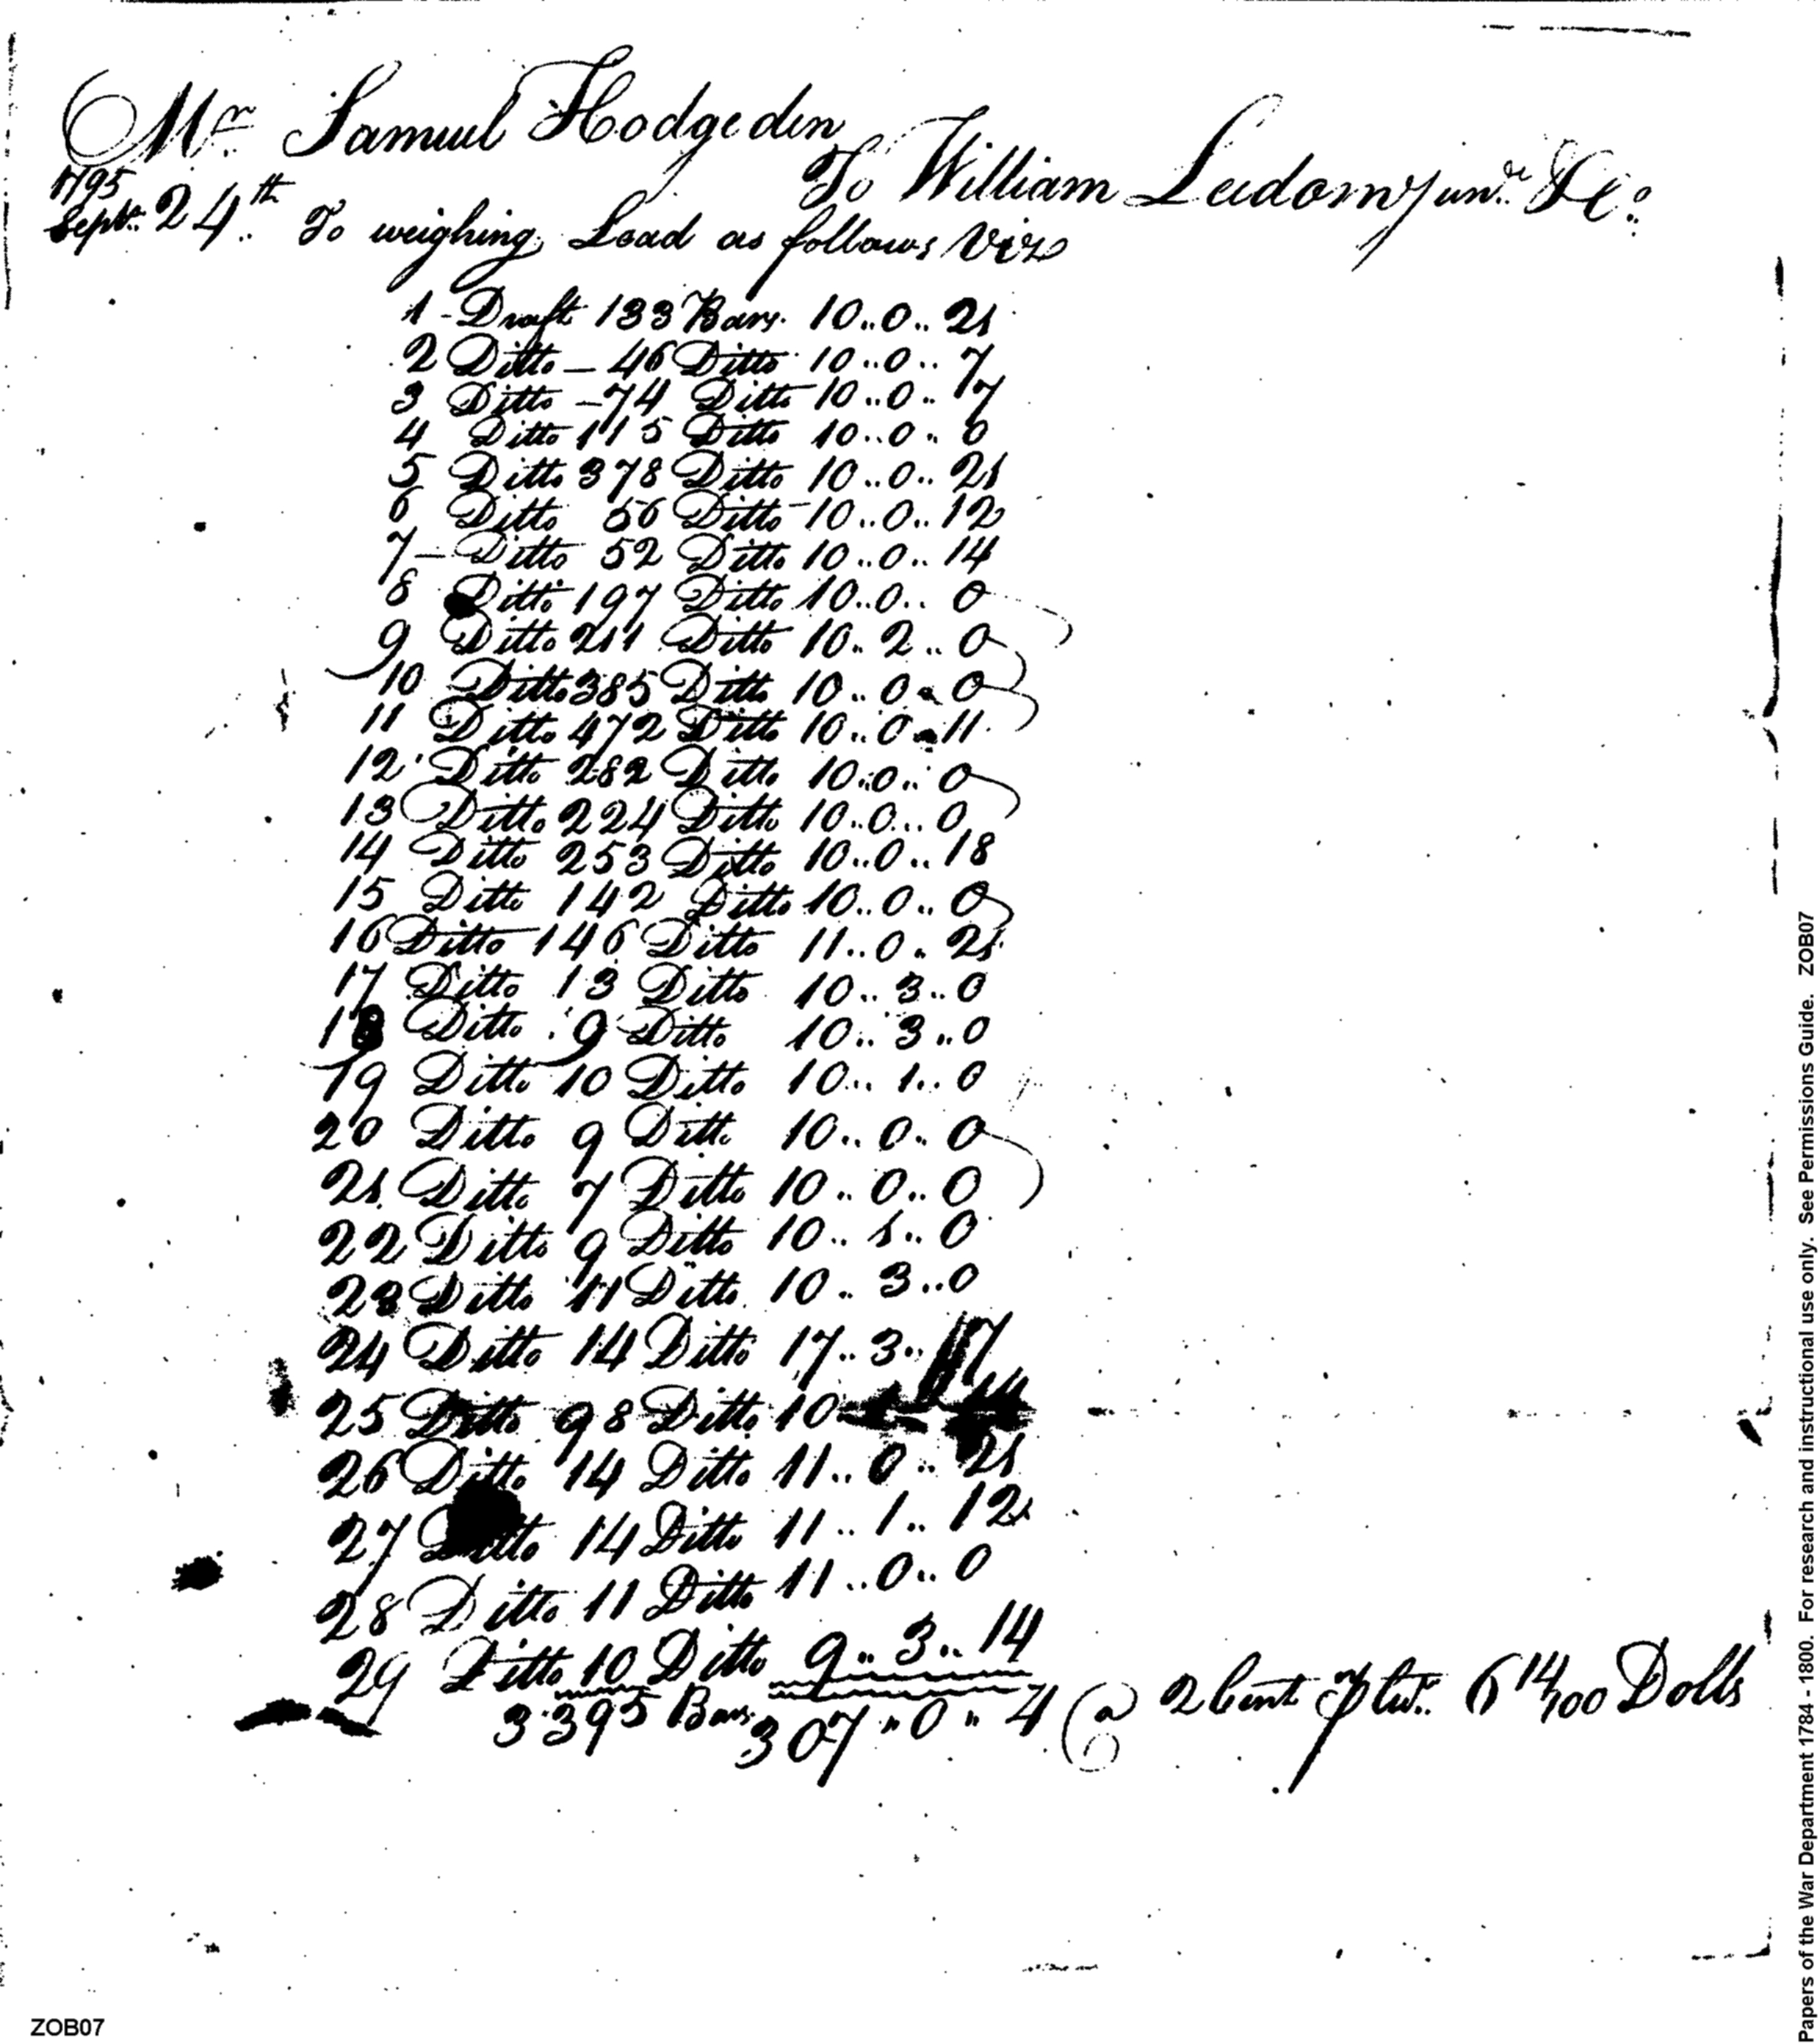 Mr. Samuel Hodgeden
To William Ledom Junr. & Co.
1795
Septr. 24th. To weighing Lead as follows Viz
1 - Draft 133 Bars. 10..0..21
2 Ditto - 46 Ditto 10..0..7
3 Ditto - 74 Ditto 10..0..17
4 Ditto 115 Ditto 10..0..0
5 Ditto 378 Ditto 10..0..21
6 Ditto 56 Ditto 10..0..12
7 - Ditto 52 Ditto 10..0..14
8 Ditto 197 Ditto 10..0..0
9 Ditto 211 Ditto 10..2..0
10 Ditto 385 Ditto 10..0..0
11 Ditto 472 Ditto 10..0..11
12 Ditto 282 Ditto 10..0..0
13 Ditto 224 Ditto 10..0..0
14 Ditto 253 Ditto 10..0..18
15 Ditto 142 Ditto 10..0..0
16 Ditto 146 Ditto 11..0..21
17 Ditto 13 Ditto 10..3..0
18 Ditto 9 Ditto 10..3..0
19 Ditto 10 Ditto 10..1..0
20 Ditto 9 Ditto 10..0..0
21 Ditto 7 Ditto 10..0..0
22 Ditto 9 Ditto 10..1..0
23 Ditto 11 Ditto 10..3..0
24 Ditto 14 Ditto 17..3..17
25 Ditto 98 Ditto 10
26 Ditto 14 Ditto 11..0..21
27 Ditto 14 Ditto 11..1..12
28 Ditto 11 Ditto 11..0..0
29 Ditto 10 Ditto 9..3..14
3395 Bars 307"0"4 @ 2 Cent p Cwt. 6 14/100 Dolls
ZOB07
Papers of the War Department 1784 - 1800. For research and instructional use only. See Permissions Guide. ZOB07